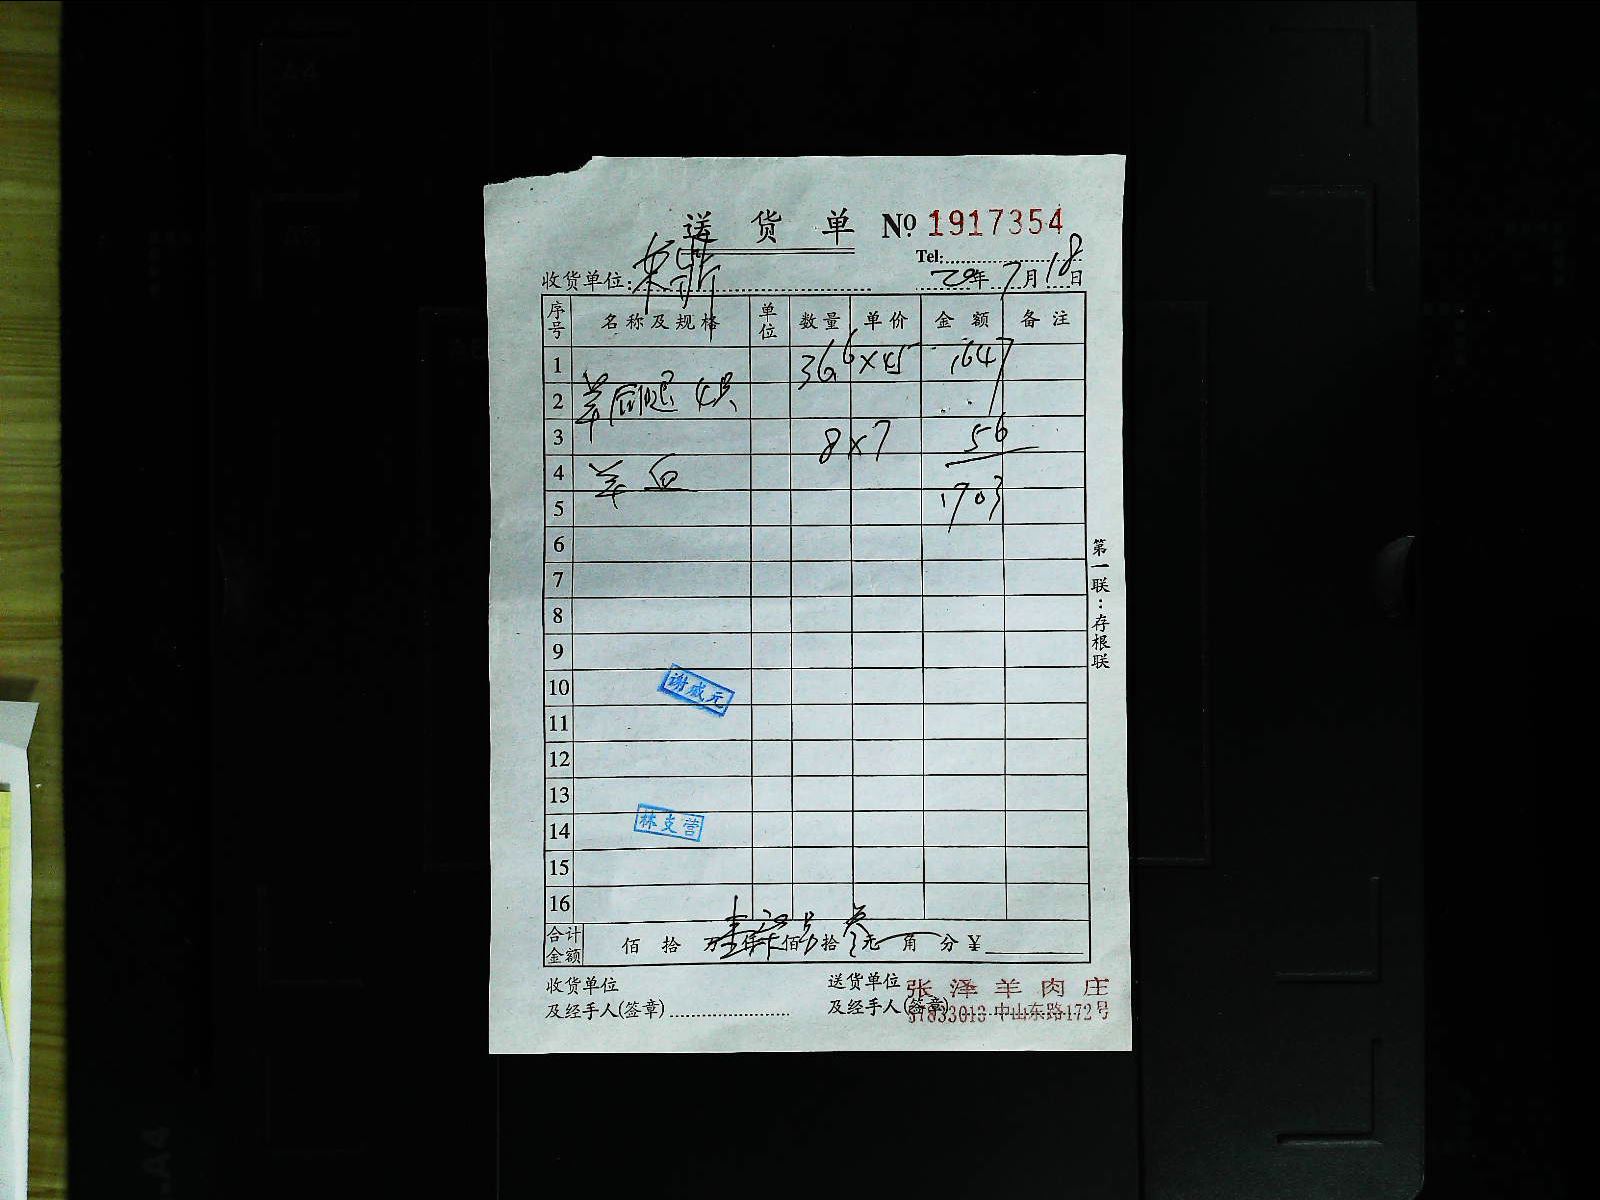 送货单 № 1917354
Tel:
收货单位: 20年7月18日
序号 名称及规格 单位 数量 单价 金额 备注
1 36.6×45 1647
2 羊后腿 4只
3 8×7 56
4 羊血
5 1703
6
7
8
9
10 谢威元
11
12
13
14 林支营
15
16
合计金额 佰 拾 万 壹仟 佰 拾 叁元 角 分 ¥
收货单位 送货单位 张泽羊肉庄
及经手人(签章) 及经手人(签章) 57833013 中山东路172号
第一联:存根联